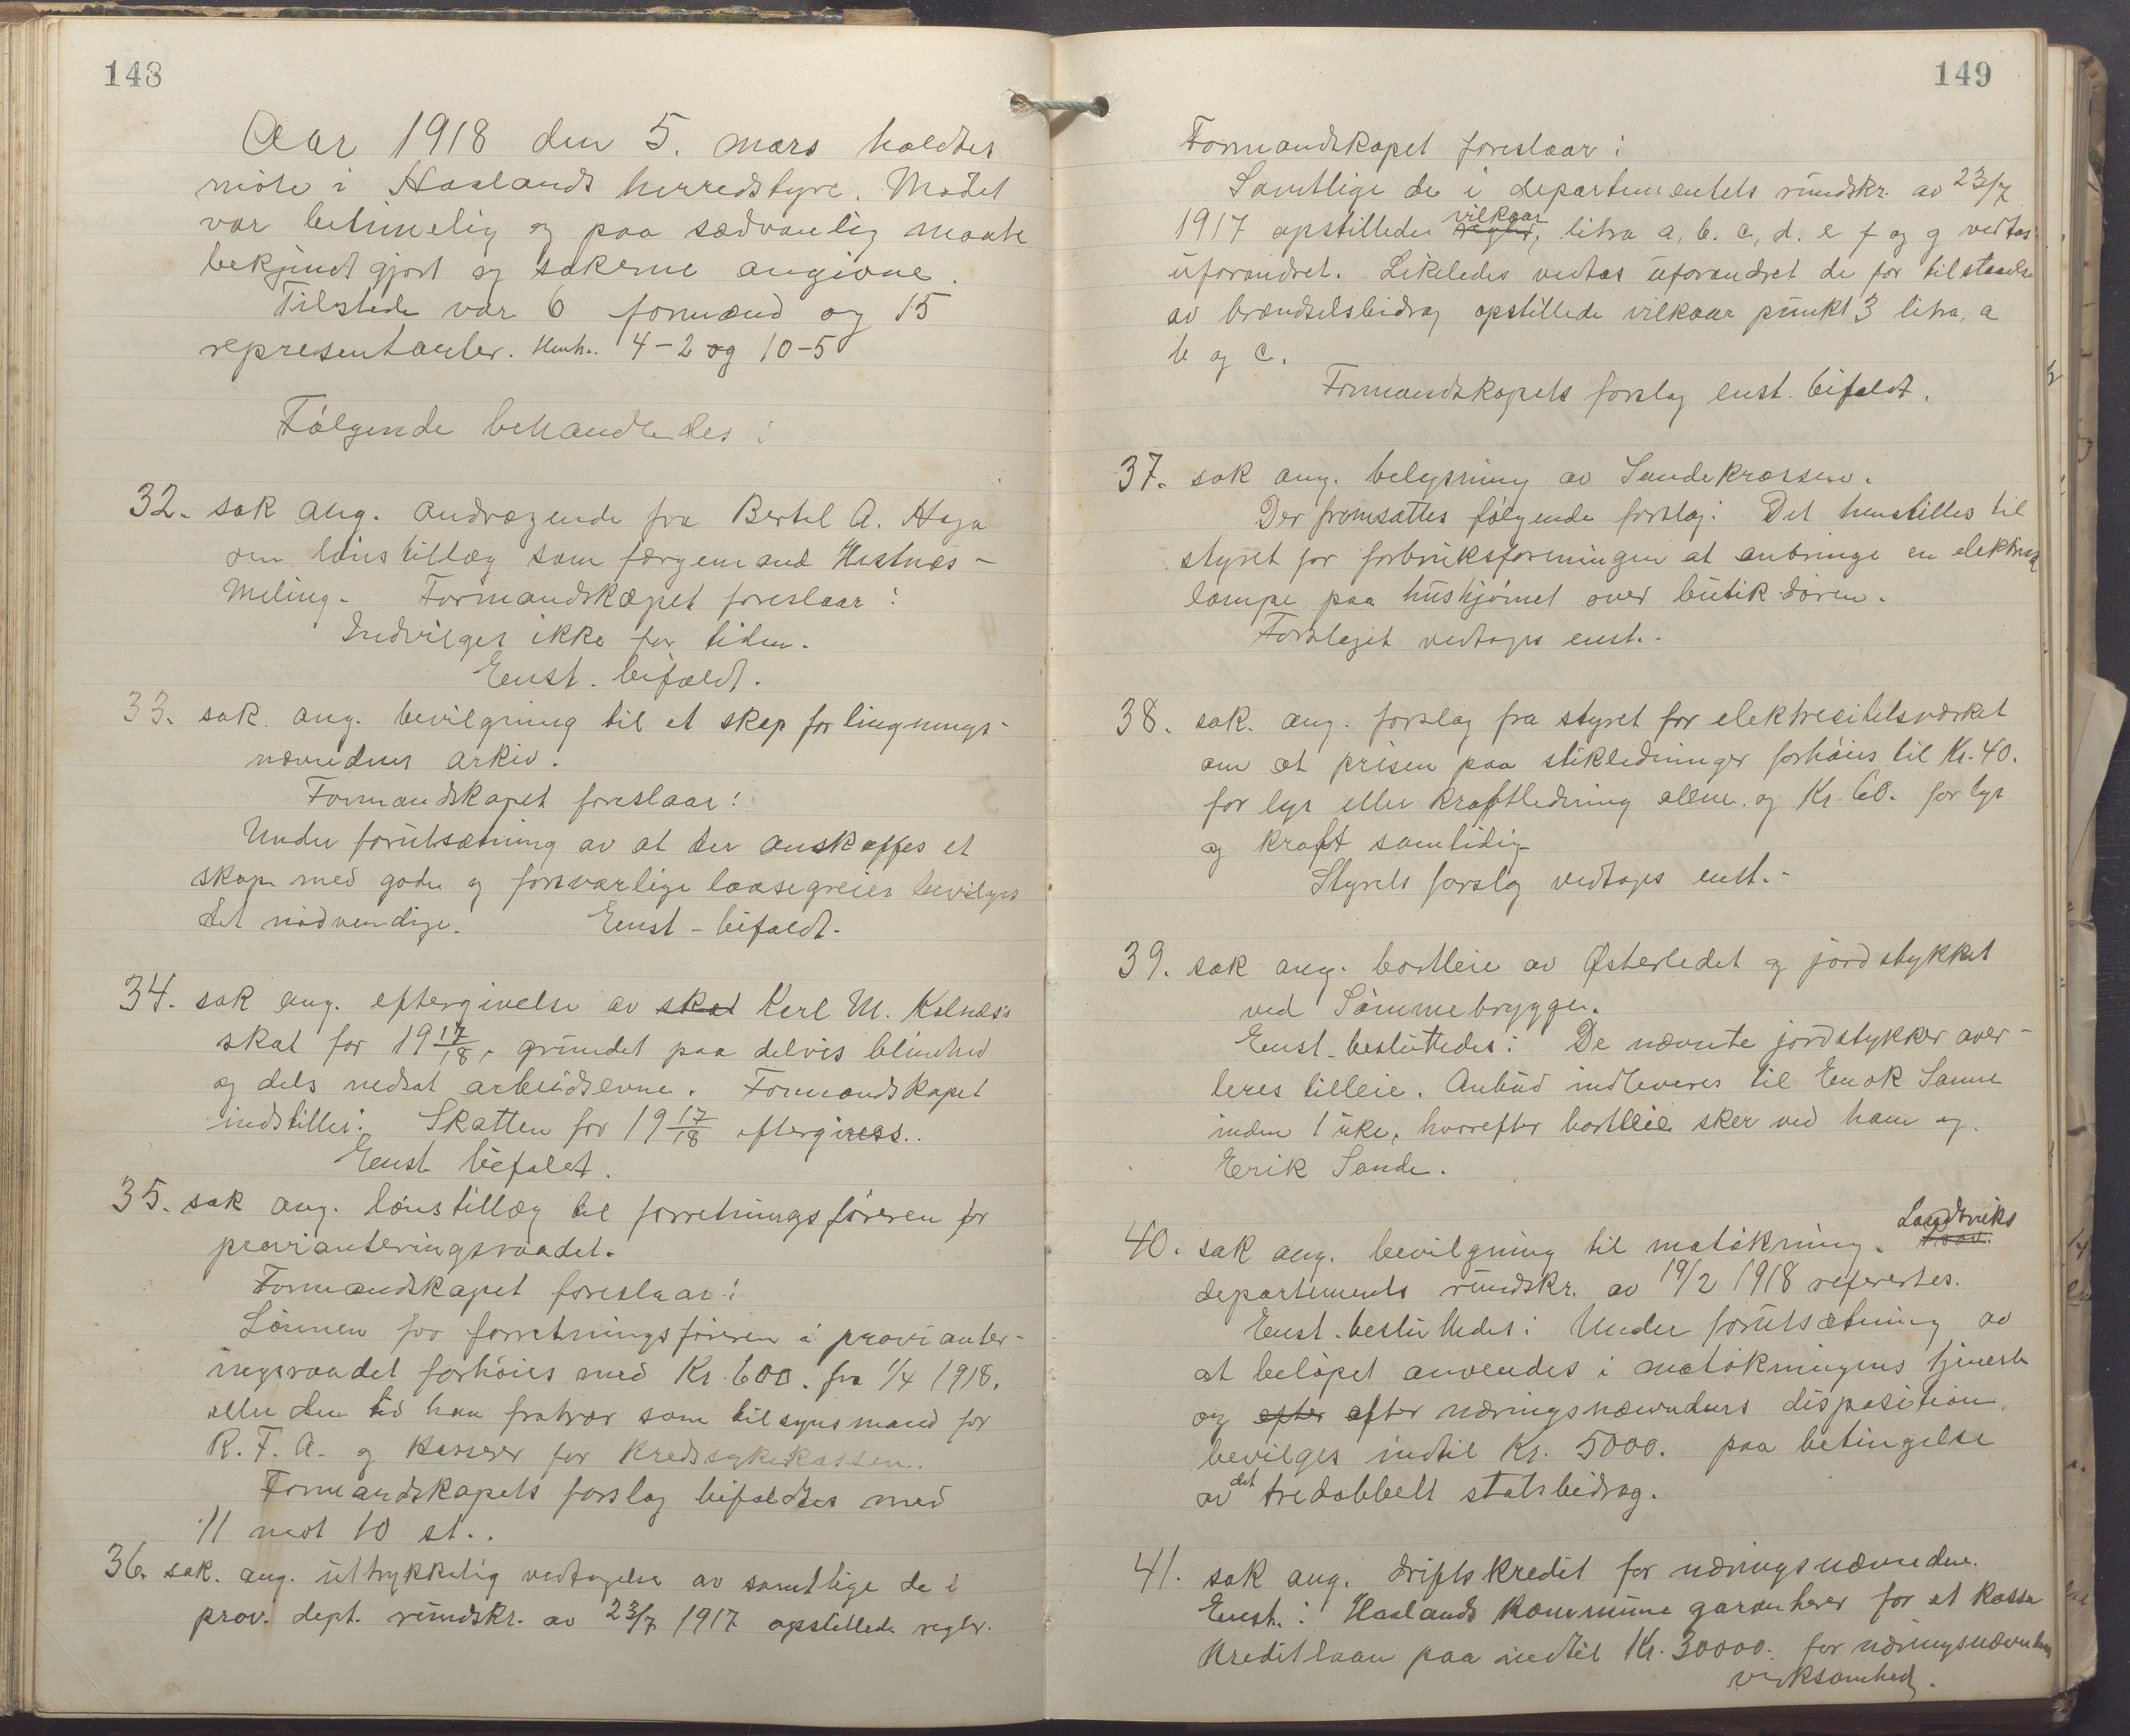 148
Aar 1918 den 5. mars holdtes
möte i Haalands herredstyre. Mödet
var betimelig og paa sædvanlig maate
bekjendtgjort og sakerne angivne.
Tilstede var 6 formænd og 15
representanter. Henh. 4-2 og 10-5
Følgende behandledes:
32. sak ang. andragende fra Bertel A. Haga
om lönstillæg som færgemand Hestnæs-
Meling. Formandskapet foreslaar:
Indvilges ikke for tiden.
Enst. bifaldt.
33. sak. ang. bevilgning til et skap for lingnings-
nævndens arkiv.
Formandskapet foreslaar:
Under forutsætning av at der anskaffes et
skap med gode og forsvarlige laasegreier bevilges
det nödvendige. Enst-bifaldt.
34. sak ang. eftergivelse av skat Karl M. Kolnæs's
skat for 19 17/18, grundet paa delvis blindhed
og dels nedsat arbeidsevne. Formandskapet
indstiller: Skatten for 19 17/18 eftergivess..
Enst bifaldt.
35. sak ang. lönstillæg til forretningsföreren for
provianteringsraadet.
Formandskapet foreslaar:
Lönnen for forretningsföreren i provianter-
ingsraadet forhöies med Kr. 600. fra 1/4 1918.
eller den tid han fratrær som tilsynsmand for
R. F. A. og kasserer for Kredssykekassen.
Formandskapets forslag bifaldtes med
11 mot 10 st..
36. sak. ang. uttrykkelig vedtagelse av samtlige de i
prov. dept. rundskr. av 23/7 1917 opstillede regler.
149
Formandskapet foreslaar:
Samtlige de i departementets rundskr. av 23/7
1917 opstillede regler, vilkaar litra a, b. c, d. e f og g vedtas
uforandret. Likeledes vedtas uforandret de for tilstaaelse
av brændselsbidrag opstillede vilkaar punkt 3 litra, a
b og c.
Formandskapets forslag enst. bifaldt.
37. sak ang. belysning av Sandekrossen.
Der fromsattes følgende forslag: Det henstilles til
styret for forbruksforeningen at anbringe en elektrisk
lampe paa hushjörnet over butikdören.
Forslaget vedtages enst.
38. sak. ang. forslag fra styret for elektrecitetsværket
om at prisen paa stikledninger forhöies til Kr. 40.
for lys eller kraftledning alene. og Kr. 60. for lys
og kraft samtidig
Styrets forslag vedtages enst.-
39. sak ang. bortleie av Østerledet og jordstykket
ved Sömmebryggen.
Enst. besluttedes: De nævnte jordstykker aver-
teres tilleie. Anbud indleveres til Enok Sanne
inden 1 uke, hvorefter bortleie sker ved ham og
Erik Sande.
40. sak ang. bevilgning til matökning. Landbruks
departements rundskr. av 19/2 1918 referertes.
Enst. besluttedes: Under forutsætning av
at belöpet anvendes i matökningens tjeneste
og efter efter næringsnævndens disposition.
bevilges indtil Kr. 5000. paa betingelse
av det tredobbelt statsbidrag.
41. sak ang. driftskredit for næringsnævnden.
Enst.: Haalands kommune garanterer for et kasse
kreditlaan paa indtil Kr. 30000. for næringsnævndens
virksomhed.